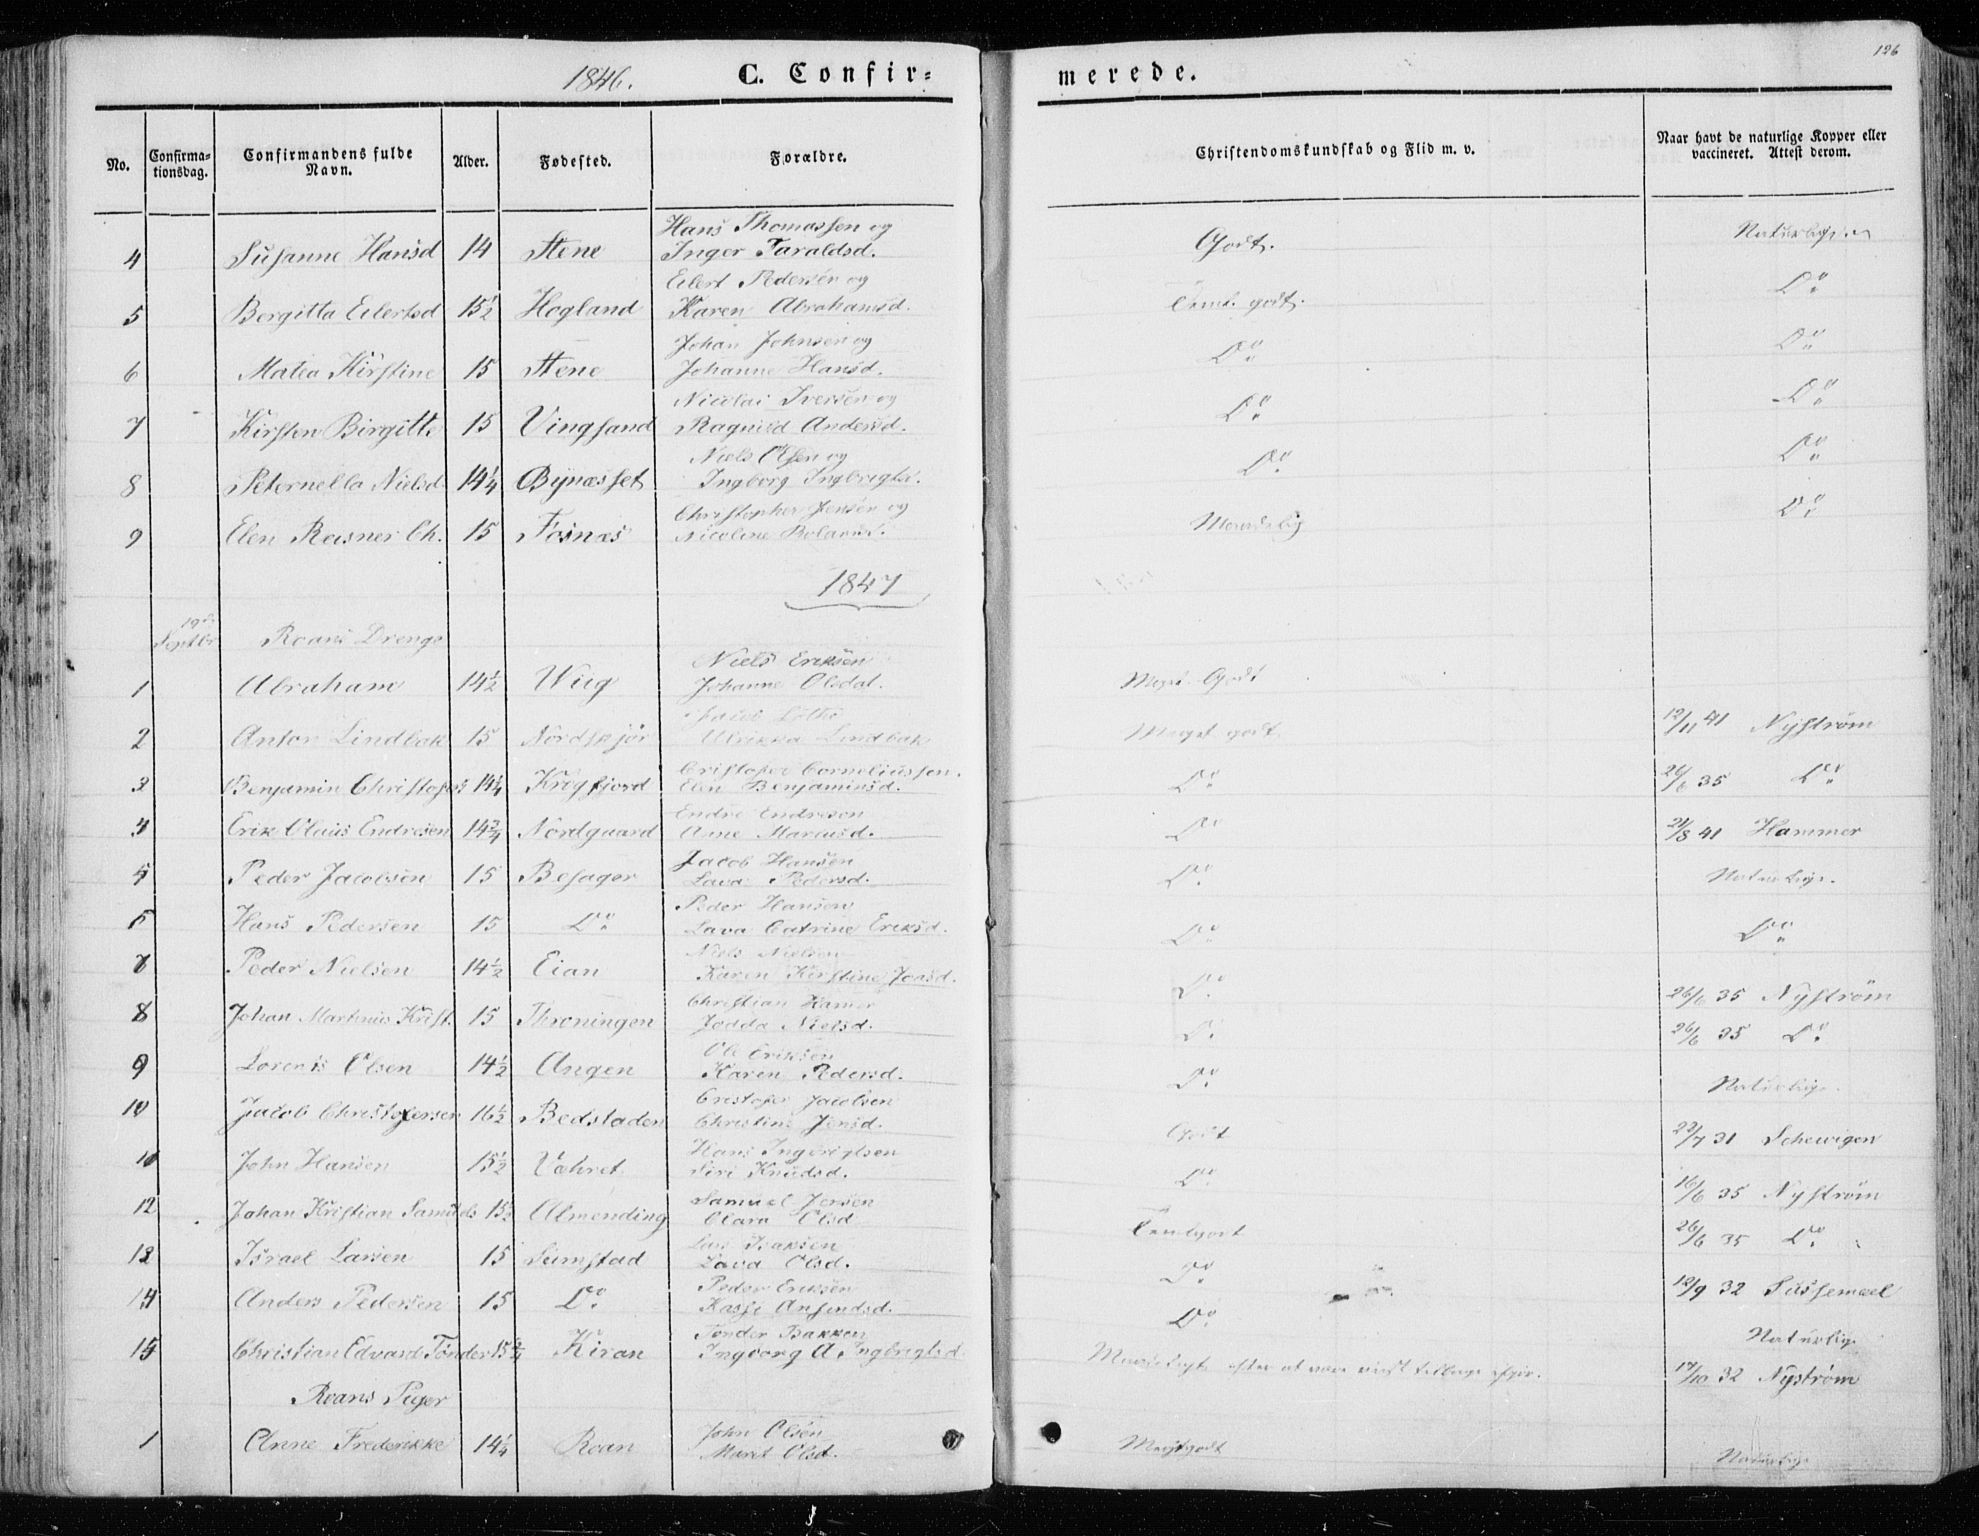 126
1846. C. Confir=merede.
No. Confirma-tionsdag. Confirmandens fulde Navn. Alder. Fødested. Forældre. Christendomskundskab og Flid m. v. Naar havt de naturlige Kopper eller vaccineret. Attest derom.
Hans Thomassen og
4 Susanne Hansd 14 Stene Inger Faraldsd. Godt.
Eilert Pedersen og
5 Bergitta Eilertsd 15½ Hogland Karen Abrahamsd. Teml. godt. Do
Johan Johnsen og
6 Matea Kirstine 15 Stene Johanne Hansd. Do Do
Nicolai Iversen og
7 Kirsten Birgitte 15 Vingsand Ragnild Andersd. Do Do
Niels Olsen og
8 Peternella Nielsd 14¼ Bynæsset Ingborg Ingbrigtsd. Do Do
Christopher Jensen og
9 Elen Rasner Ch. 15 Fosnæs Nicoline Do
1847
19de Septbr Roans Drenge
Niels Eriksen
1 Abraham 14½ Wiig Johanne Olsdat. Meget Godt
2 Anton Lindbak 15 Nordskjør Ulrikka Lindbak Meget godt 12/11 41 Nyström
Cristofer Corneliussen.
3 Benjamin Christofers 14¼ Krogfjord Elen Benjaminsd. Do 26/6 35 Do
Endre Endresen
4 Erik Olaus Endresen 14¾ Nordgaard Anne Marcusd. Do 21/8 41 Hammer
Jacob Hansen
5 Peder Jacobsen 15 Besager Lava Pedersd. Do Naturlige.
Peder Hansen
6 Hans Pedersen 15 Do Lava Catrine Eriksd. Do Do
Niels Nielsen
7 Peder Nielsen 14½ Eian Karen Kirstine Jonsd. Do 26/6 35 Nyström
Christian Hamer
8 Johan Martinus Krist. 15 Throningen Jodda Nielsd. Do 26/6 35 Do
Ole Eriksen
9 Lorents Olsen 14½ Angen Karen Pedersd. Do Naturlige.
Cristofer Jacobsen
10 Jacob Christofersen 16½ Bedstaden Christine Jensd. Godt 22/7 31 Schewigen
Hans Ingbrigtsen
John Hansen 15½ Siri Knudsd. Do 16/6 35 Nyström
Samuel Jensen
12 Johan Kristian Samuels 15½ Almending Olava Olsd Temlgodt 26/6 35 Do
Lars Isaksen
13 Israel Larsen 15 Sumstad Lava Olsd. Do 12/9 32 Sussemeel
Peder Eriksen
14 Anders Pedersen 15 Do Do Naturlig.
Tønder Bakken
15 Christian Edvard Tønder 15¾ Kiran Ingborg A. Ingbrigtsd 17/10 32 Nyström
Roans Piger
John Olsen
1 Anne Frederikke 14¼ Roan Maret Olsd. Megetgodt Naturlige